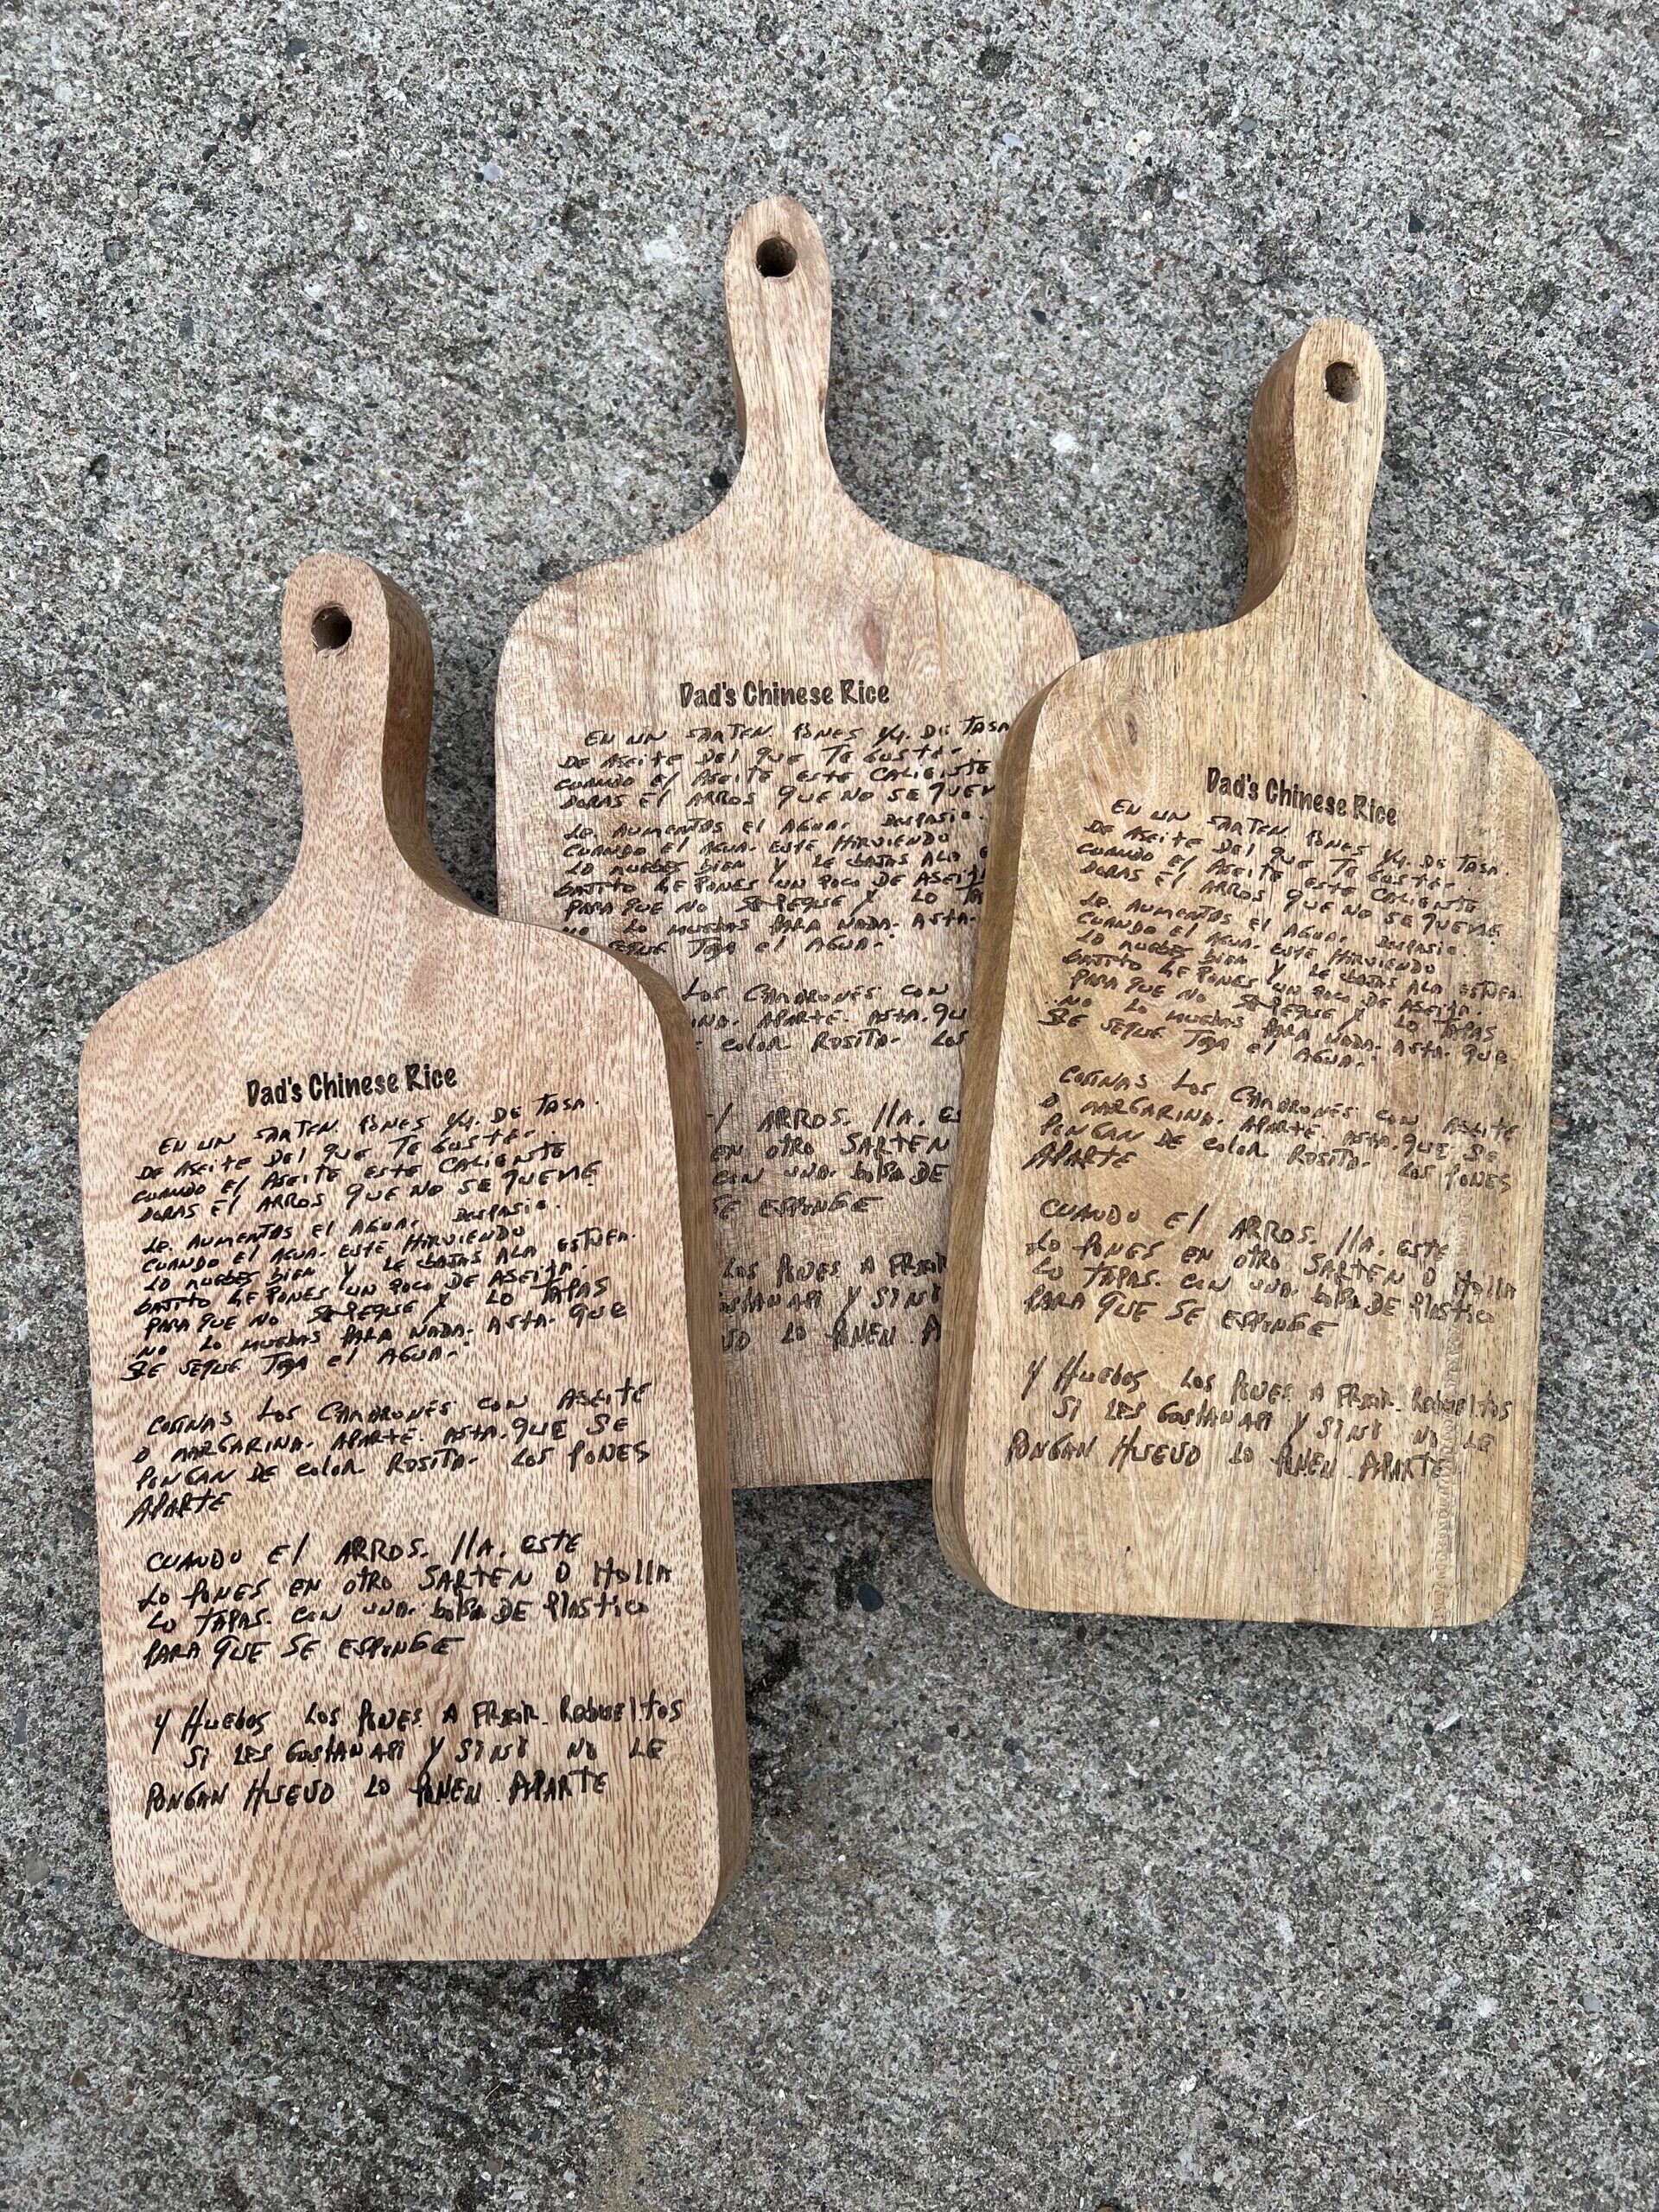 Dad's Chinese Rice
EN UN SARTEN PONES 1/4. DE TASA.
DE ASEITE DEl QUE TE GUSTE..
CUANDO El ASEITE ESTE CALIENTE
DORAS El ARROS QUE NO SE QUEME
LE AUMENTAS El AGUA. DESPASIO.
CUANDO El AGUA. ESTE HIRVIENDO
LO MUEBES BIEN Y LE BAJAS ALA ESTUFA.
BAJITO LE PONES UN POCO DE ASEITE.
PARA QUE NO SE PEGUE Y LO TAPAS
NO LO MUEBAS PARA NADA. ASTA. QUE
SE SEQUE TODA El AGUA.
COSINAS LOS CAMARONES CON ASEITE
O MARGARINA. APARTE. ASTA. QUE SE
PONGAN DE COLOR ROSITA. LOS PONES
APARTE
CUANDO El ARROS. llA. ESTE
LO PONES EN OTRO SARTEN O HOllA
LO TAPAS. CON UNA. BOLSA DE PlASTICO
PARA QUE SE ESPONGE
Y HUEBOS LOS PONES A FREIR REBUELTOS
SI LES GUSTAN ASI Y SINO NO LE
PONGAN HUEVO LO PONEN. APARTE
Dad's Chinese Rice
EN UN SARTEN PONES 1/4. DE TASA
DE ASEITE DEl QUE TE GUSTE..
CUANDO El ASEITE ESTE CALIENTE
DORAS El ARROS QUE NO SE QUEM
LE AUMENTAS El AGUA. DESPASIO.
CUANDO El AGUA. ESTE HIRVIENDO
LO MUEBES BIEN Y LE BAJAS ALA E
BAJITO LE PONES UN POCO DE ASEIT
PARA QUE NO SE PEGUE Y LO TA
NO LO MUEBAS PARA NADA. ASTA.
SEQUE TODA El AGUA.
LOS CAMARONES CON
INA. APARTE. ASTA. QU
E COLOR ROSITA. LOS
El ARROS. llA. ES
EN OTRO SARTEN
CON UNA. BOLSA DE
SE ESPONGE
LOS PONES A FREIR
GUSTAN ASI Y SINO
LO PONEN. A
Dad's Chinese Rice
EN UN SARTEN PONES 1/4. DE TASA.
DE ASEITE DEl QUE TE GUSTE..
CUANDO El ASEITE ESTE CALIENTE
DORAS El ARROS QUE NO SE QUEME
LE AUMENTAS El AGUA. DESPASIO.
CUANDO El AGUA. ESTE HIRVIENDO
LO MUEBES BIEN Y LE BAJAS ALA ESTUFA.
BAJITO LE PONES UN POCO DE ASEITE.
PARA QUE NO SE PEGUE Y LO TAPAS
NO LO MUEBAS PARA NADA. ASTA. QUE
SE SEQUE TODA El AGUA.
COSINAS LOS CAMARONES CON ASEITE
O MARGARINA. APARTE. ASTA. QUE SE
PONGAN DE COLOR ROSITA. LOS PONES
APARTE
CUANDO El ARROS. llA. ESTE
LO PONES EN OTRO SARTEN O HOllA
LO TAPAS. CON UNA. BOLSA DE PlASTICO
PARA QUE SE ESPONGE
Y HUEBOS LOS PONES A FREIR REBUELTOS
SI LES GUSTAN ASI Y SINO NO LE
PONGAN HUEVO LO PONEN. APARTE